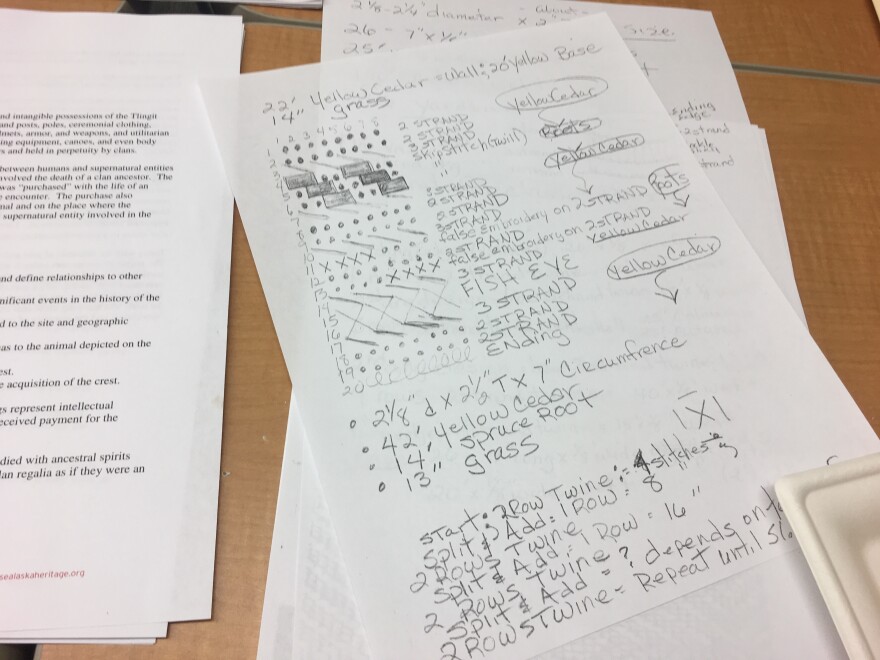 nd intangible possessions of the Tlingit
and posts, poles, ceremonial clothing,
lmets, armor, and weapons, and utilitarian
ing equipment, canoes, and even body
s and held in perpetuity by clans.
between humans and supernatural entities
nvolved the death of a clan ancestor. The
was "purchased" with the life of an
e encounter. The purchase also
nal and on the place where the
supernatural entity involved in the
nd define relationships to other
nificant events in the history of the
d to the site and geographic
as to the animal depicted on the
est.
e acquisition of the crest.
gs represent intellectual
eceived payment for the
died with ancestral spirits
lan regalia as if they were an
sealaskaheritage.org
2 1/8 - 2 1/4" diameter
26 = 7" x 1/2"
25
size
ending
edge
2 strand
strand
22' Yellow Cedar = Wall; 20 Yellow Base
14" grass
Yellow Cedar
1 2 3 4 5 6 7 8
2 STRAND
2 STRAND
3 STRAND
skip stitch (twill)
"
Roots
Yellow Cedar
2 STRAND
2 STRAND
3 STRAND
false embroidery on 2 STRAND
2 STRAND
false embroidery on 2 STRAND
3 STRAND
FISH EYE
3 STRAND
2 STRAND
2 STRAND
Ending
Roots
Yellow Cedar
Yellow Cedar
• 2 1/8" d x 2 1/2" T x 7" Circumfrence
• 42' Yellow Cedar
• 14' Spruce Root
• 13" grass
Start: 2 Row Twine: 4 stitches
Split & Add: 1 Row = 8 "
2 Rows Twine
Split & Add = 1 Row = 16 "
2 Rows Twine
Split & Add = ? depends on
2 Rows Twine = Repeat until